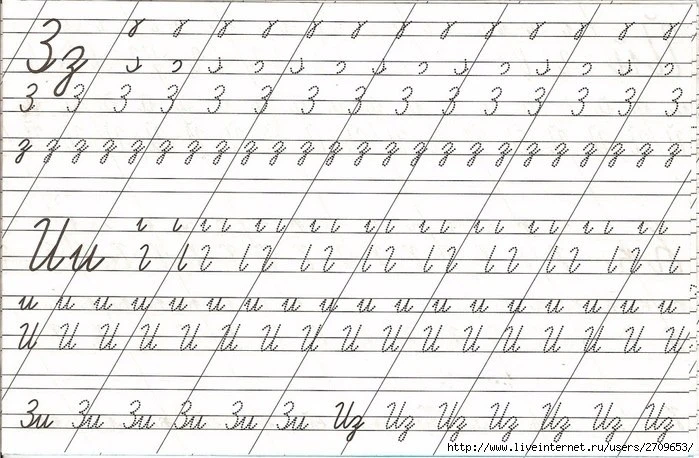 Зз
З З З З З З З З З З З З З З З
з з з з з з з з з з з з з з з з з з з з з з з з
Ии
и и и и и и и и и и и и и и и и и и
И И И И И И И И И И И И И И И И И
Зи Зи Зи Зи Зи Зи Из Из Из Из Из Из Из
http://www.liveinternet.ru/users/2709653/